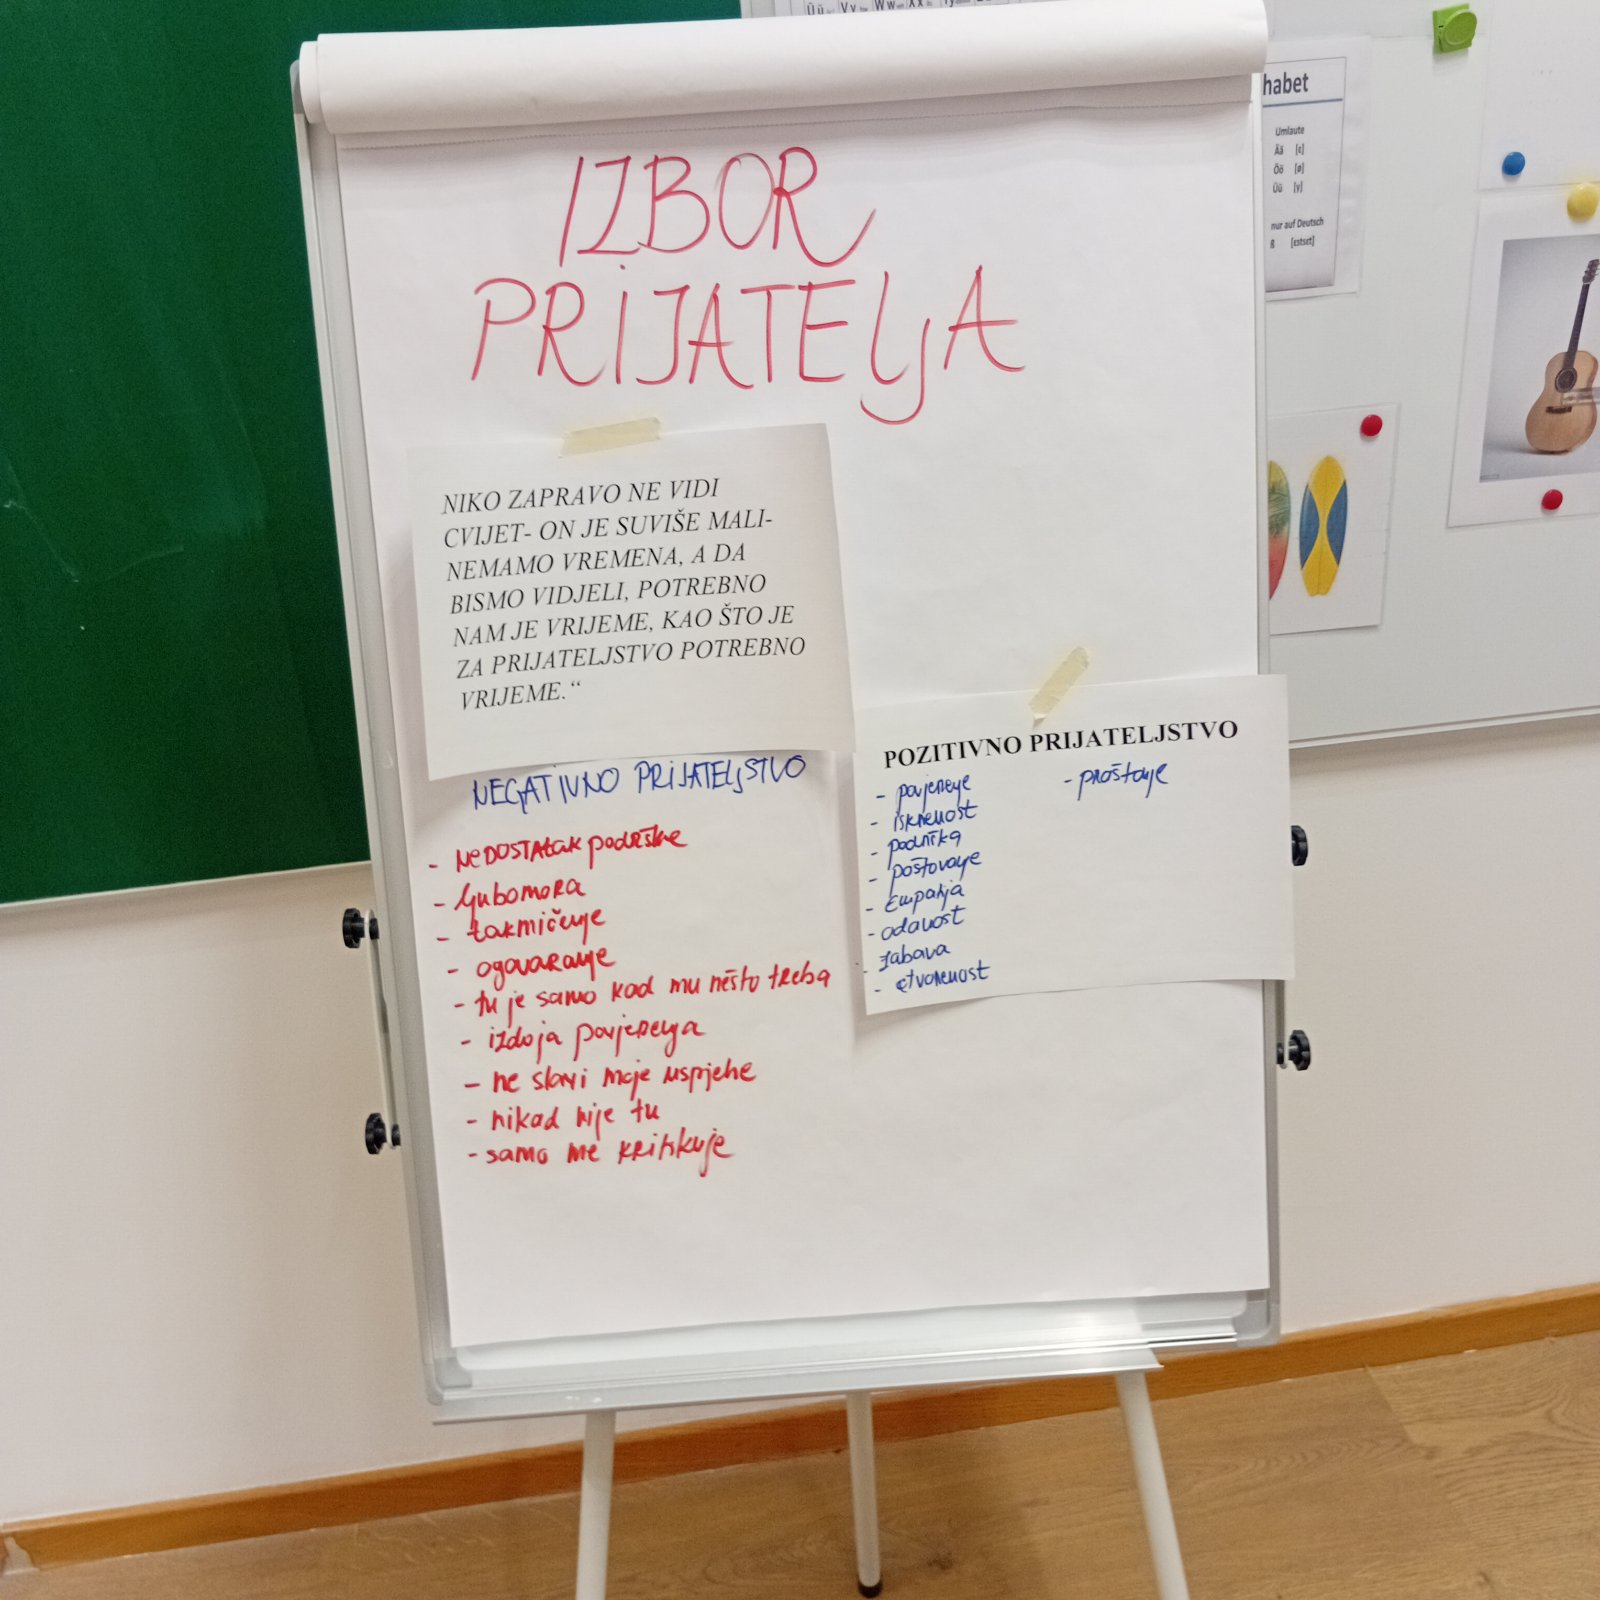 Üü Vv Ww Xx
habet
Umlaute
Ää [ε]
Öö [ø]
Üü [y]
nur auf Deutsch
ß [εstset]
IZBOR
PRIJATELJA
NIKO ZAPRAVO NE VIDI
CVIJET- ON JE SUVIŠE MALI-
NEMAMO VREMENA, A DA
BISMO VIDJELI, POTREBNO
NAM JE VRIJEME, KAO ŠTO JE
ZA PRIJATELJSTVO POTREBNO
VRIJEME.“
NEGATIVNO PRIJATELJSTVO
- NEDOSTAtak podrške
- ljubomora
- takmičenje
- ogovaranje
- tu je samo kad mu nešto treba
- izdaja povjerenja
- ne slavi moje uspjehe
- nikad nije tu
- samo me kritikuje
POZITIVNO PRIJATELJSTVO
- povjerenje
- iskrenost
- podrška
- poštovanje
- Empatija
- odanost
- zabava
- otvorenost
- praštanje